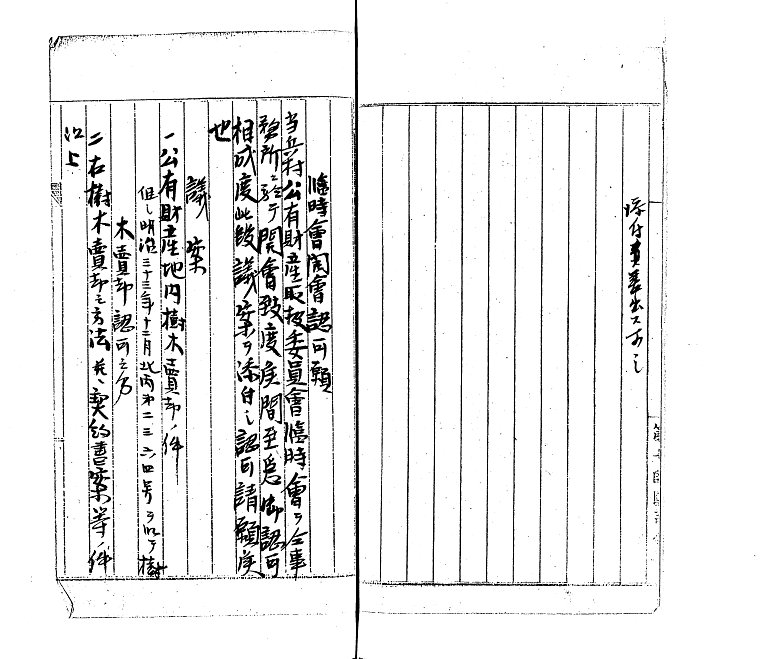 臨時會開會認可願
当兵村公有財産取扱委員會臨時會ヲ仝事
務所ニ於テ開會致度候間至急御認可
相成度此段議案ヲ添付シ認可請願候
也
議案
一公有財産地内樹木賣却ノ件
但シ明治三十三年十二月北丙第二三六四号ヲ以テ樹
木賣却認可之分
二右樹木賣却之方法並ニ契約書案等ノ件
以上